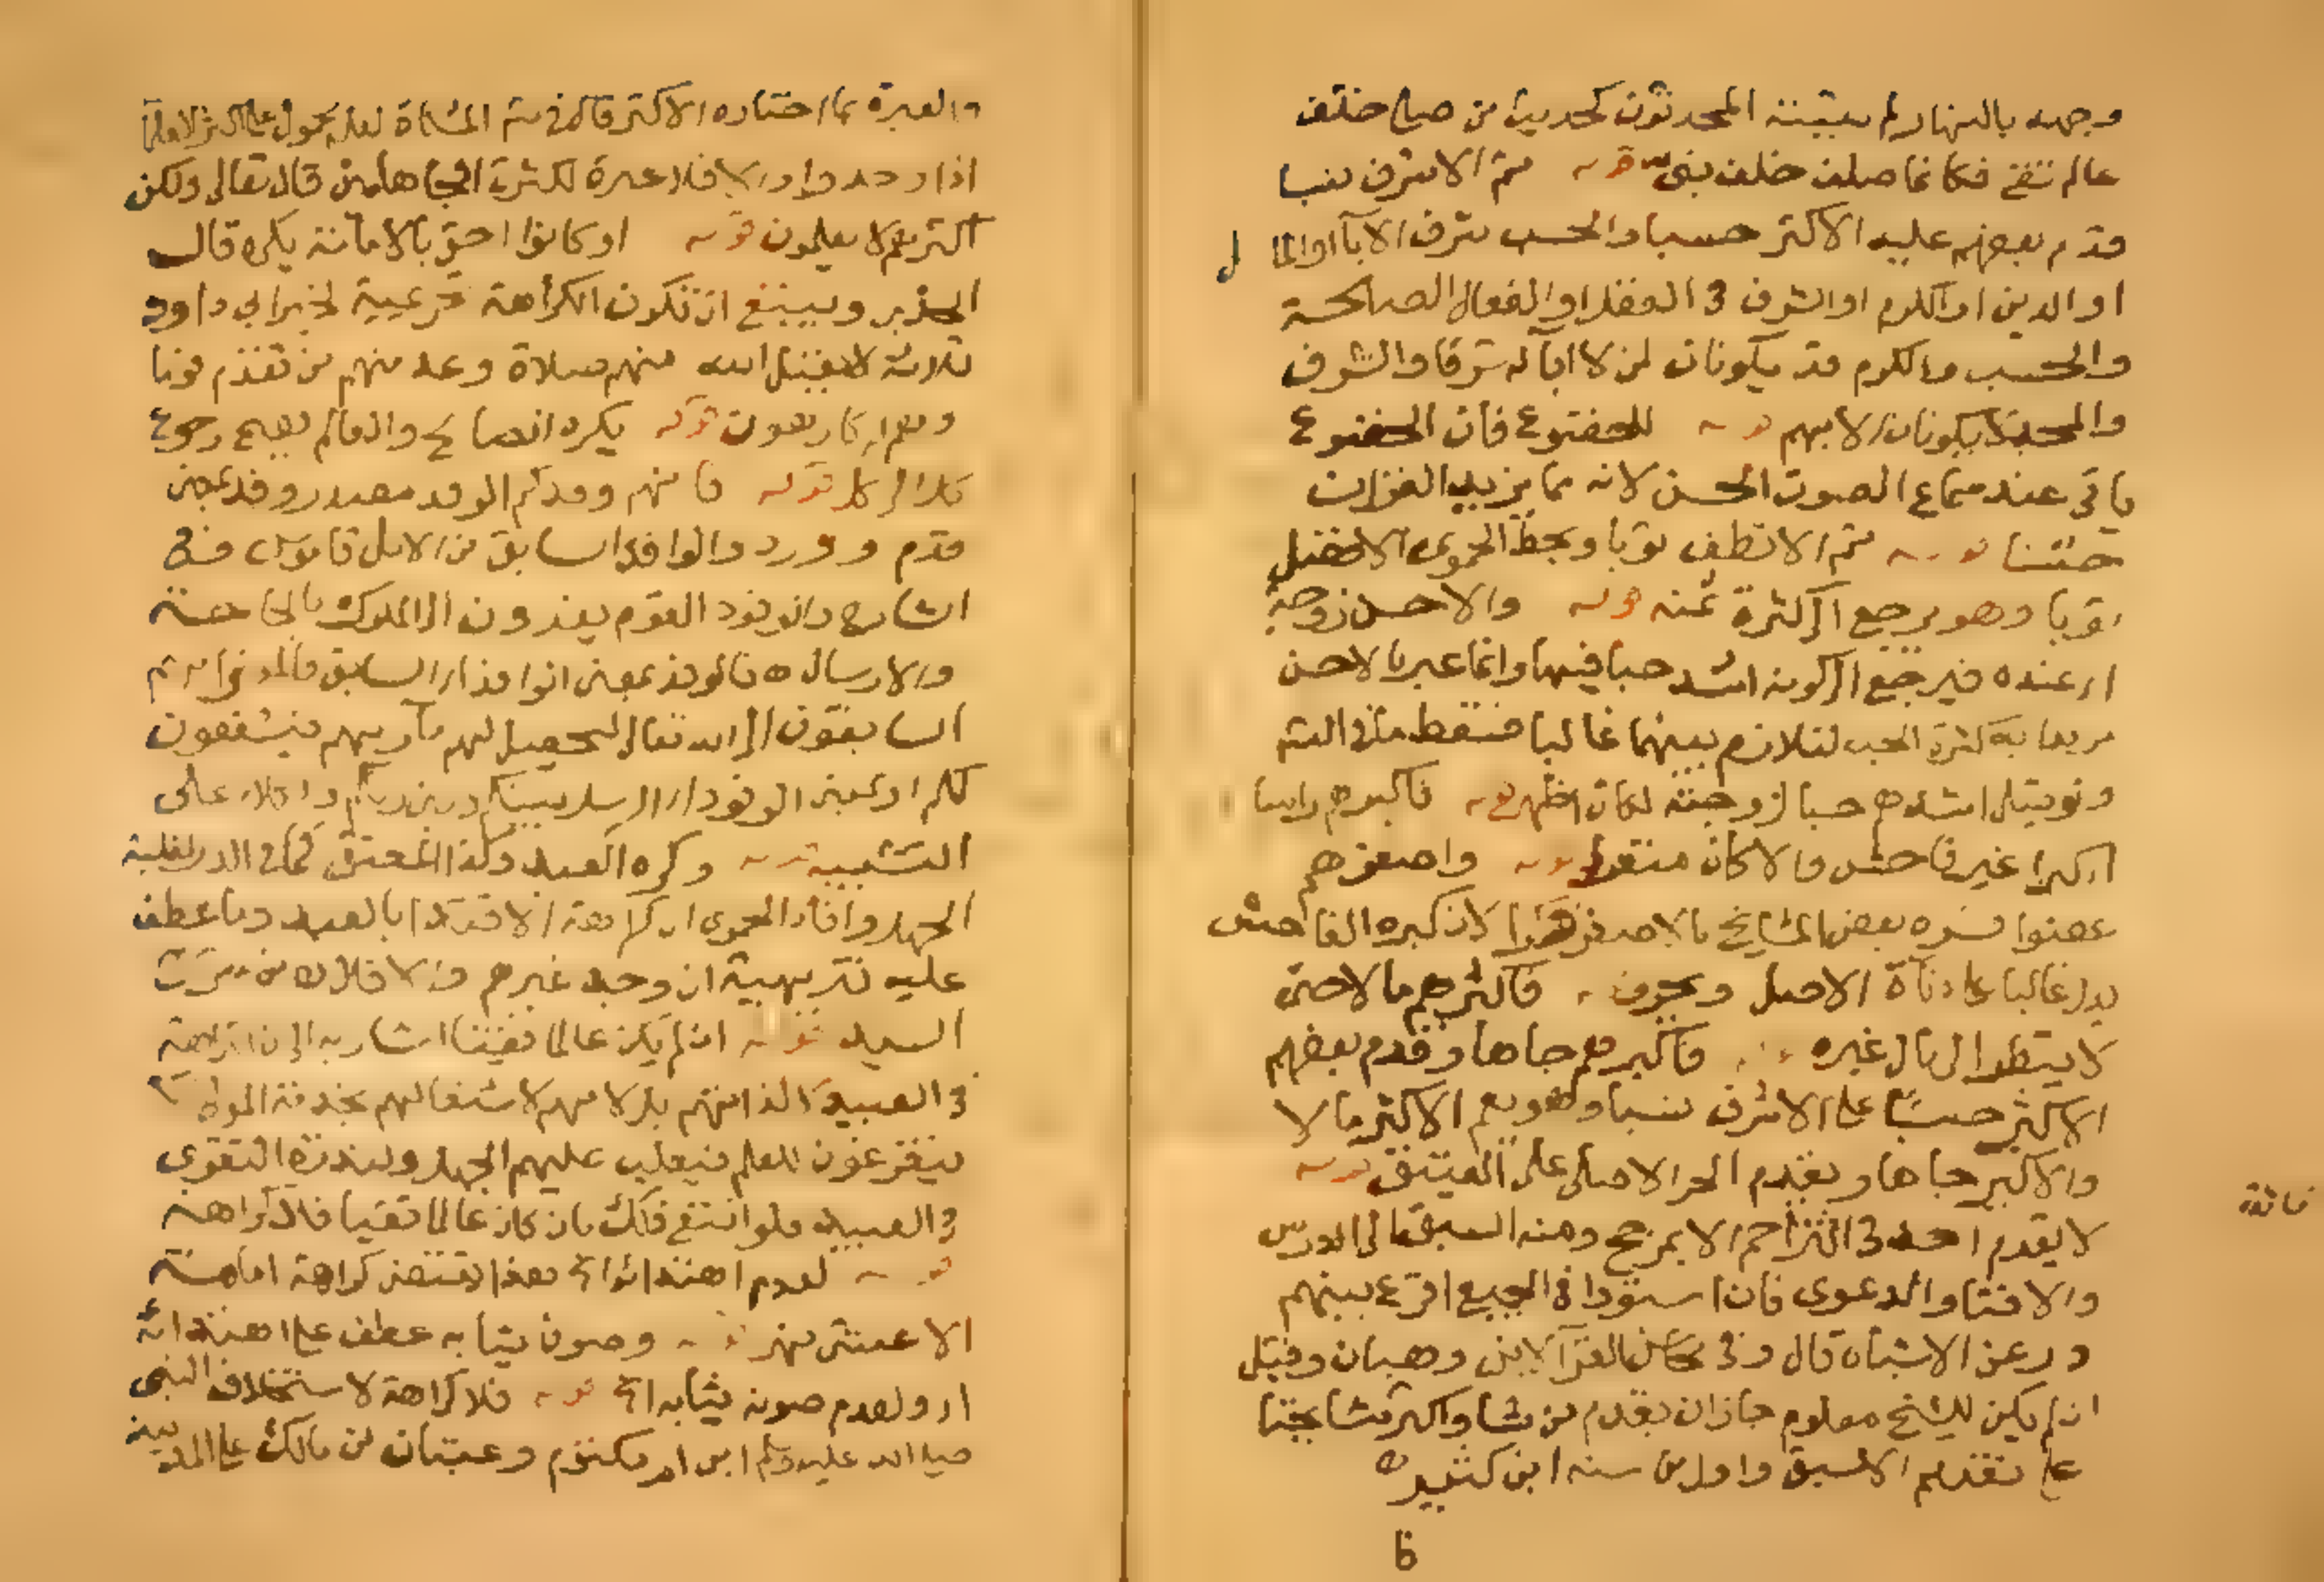 وجهه بالنهار لم يثبته المحدثون كحديث من صلى خلف
عالم تقي فكانما صلى خلف نبي قوله ثم الاشرف نسبا
قدم بعضهم عليه الاكثر حسبا والحسب شرف الآباء او المال
او الدين او الكرم او الشرف في العقل او الفعال الصالحة
والحسب والكرم قد يكونان لمن لا اباء له شرفا والشرف
والمجد لا يكونان الا بهم قوله للخضوع فان الخضوع
ياتي عند سماع الصوت الحسن لانه مما يزيد القران
حسنا قوله ثم الانظف ثوبا وبخط الحموي الافضل
ثوبا وهو يرجع الى كثرة ثمنه قوله والاحسن زوجة
اي عنده فيرجع الى كونه اشد حبا فيها وانما عبر بالاحسن
مريدا به كثرة الحب لتلازم بينهما غالبا فسقط ما في
ولو قيل اشدهم حبا لزوجته لكان اظهر قوله فاكبرهم راسا
اي كبرا غير فاحش والا كان منفرا قوله واصغرهم
عضوا فسره بعض المشايخ بالاصغر ذكرا لان كبره الفاحش
يدل غالبا على دناءة الاصل ويحرر قوله فاكثرهم مالا حتى
لا ينظر الى مال غيره قوله فاكبرهم جاها وقدم بعضهم
الاكثر حسبا على الاشرف نسبا وهو يعم الاكثر مالا
والاكبر جاها ويقدم الحر الاصلي على العتيق قوله
فائدة
لا يقدم احد في التزاحم الا بمرجح ومنه السبق الى الدرس
والافتا والدعوى فان استووا في المجيء اقرع بينهم
در عن الاشباه قال وفي محاسن القراء لابن وهبان وقيل
ان لم يكن للشيخ معلوم جاز ان يقدم من شاء واكثر مشايخنا
على تقديم الاسبق واول من سنه ابن كثير
والعبرة بما اختاره الاكثر قال في شرح المشكاة لعله محمول على الاكثر الاعلم
اذا وجدوا والا فلا عبرة لكثرة الجاهلين قال تعالى ولكن
اكثرهم لا يعلمون قوله او كانوا احق بالامامة يكره قال
الحلبي وينبغي ان تكون الكراهة تحريمية لخبر ابي داود
ثلاثة لا يقبل الله منهم صلاة وعد منهم من تقدم قوما
وهم له كارهون قوله يكره الصالح والعالم يصح رجوع
كل الى كل قوله فانهم وفدكم الوفد مصدر وفد بمعنى
قدم وورد والوافد السابق من الابل قاموس وفي
الشارح والوفود القوم يفدون الى الملوك بالحاجة
والارسال فالوفد بمعنى الوافد اي السابق فالمعنى انهم
السابقون الى الله تعالى لتحصيل لهم مآربهم فيشفعون
لكم او بمعنى الوفود اي الرسل بينكم وبين ربكم والكلام على
التشبيه قوله وكره العبد وكذا المعتق كما في الدر لغلبة
الجهل وافاد الحموي ان كراهة الاقتداء بالعبد وما عطف
عليه تنزيهية ان وجد غيرهم والا فلا من شرح
السيد قوله ان لم يكن عالما تقيا اشار به الى ان الكراهة
في العبيد لا لذاتهم بل لانهم لاشتغالهم بخدمة المولى لا
يتفرغون للعلم فيغلب عليهم الجهل ولندرة التقوى
في العبيد فلو انتفى ذلك بان كان عالما تقيا فلا كراهة
قوله لعدم اهتدائه الخ هذا يقتضي كراهة امامة
الاعشى نهر قوله وصون ثيابه عطف على اهتدائه
اي ولعدم صون ثيابه الخ قوله فلا كراهة لاستخلاف النبي
صلى الله عليه وسلم ابن ام مكتوم وعتبان بن مالك على المدينة